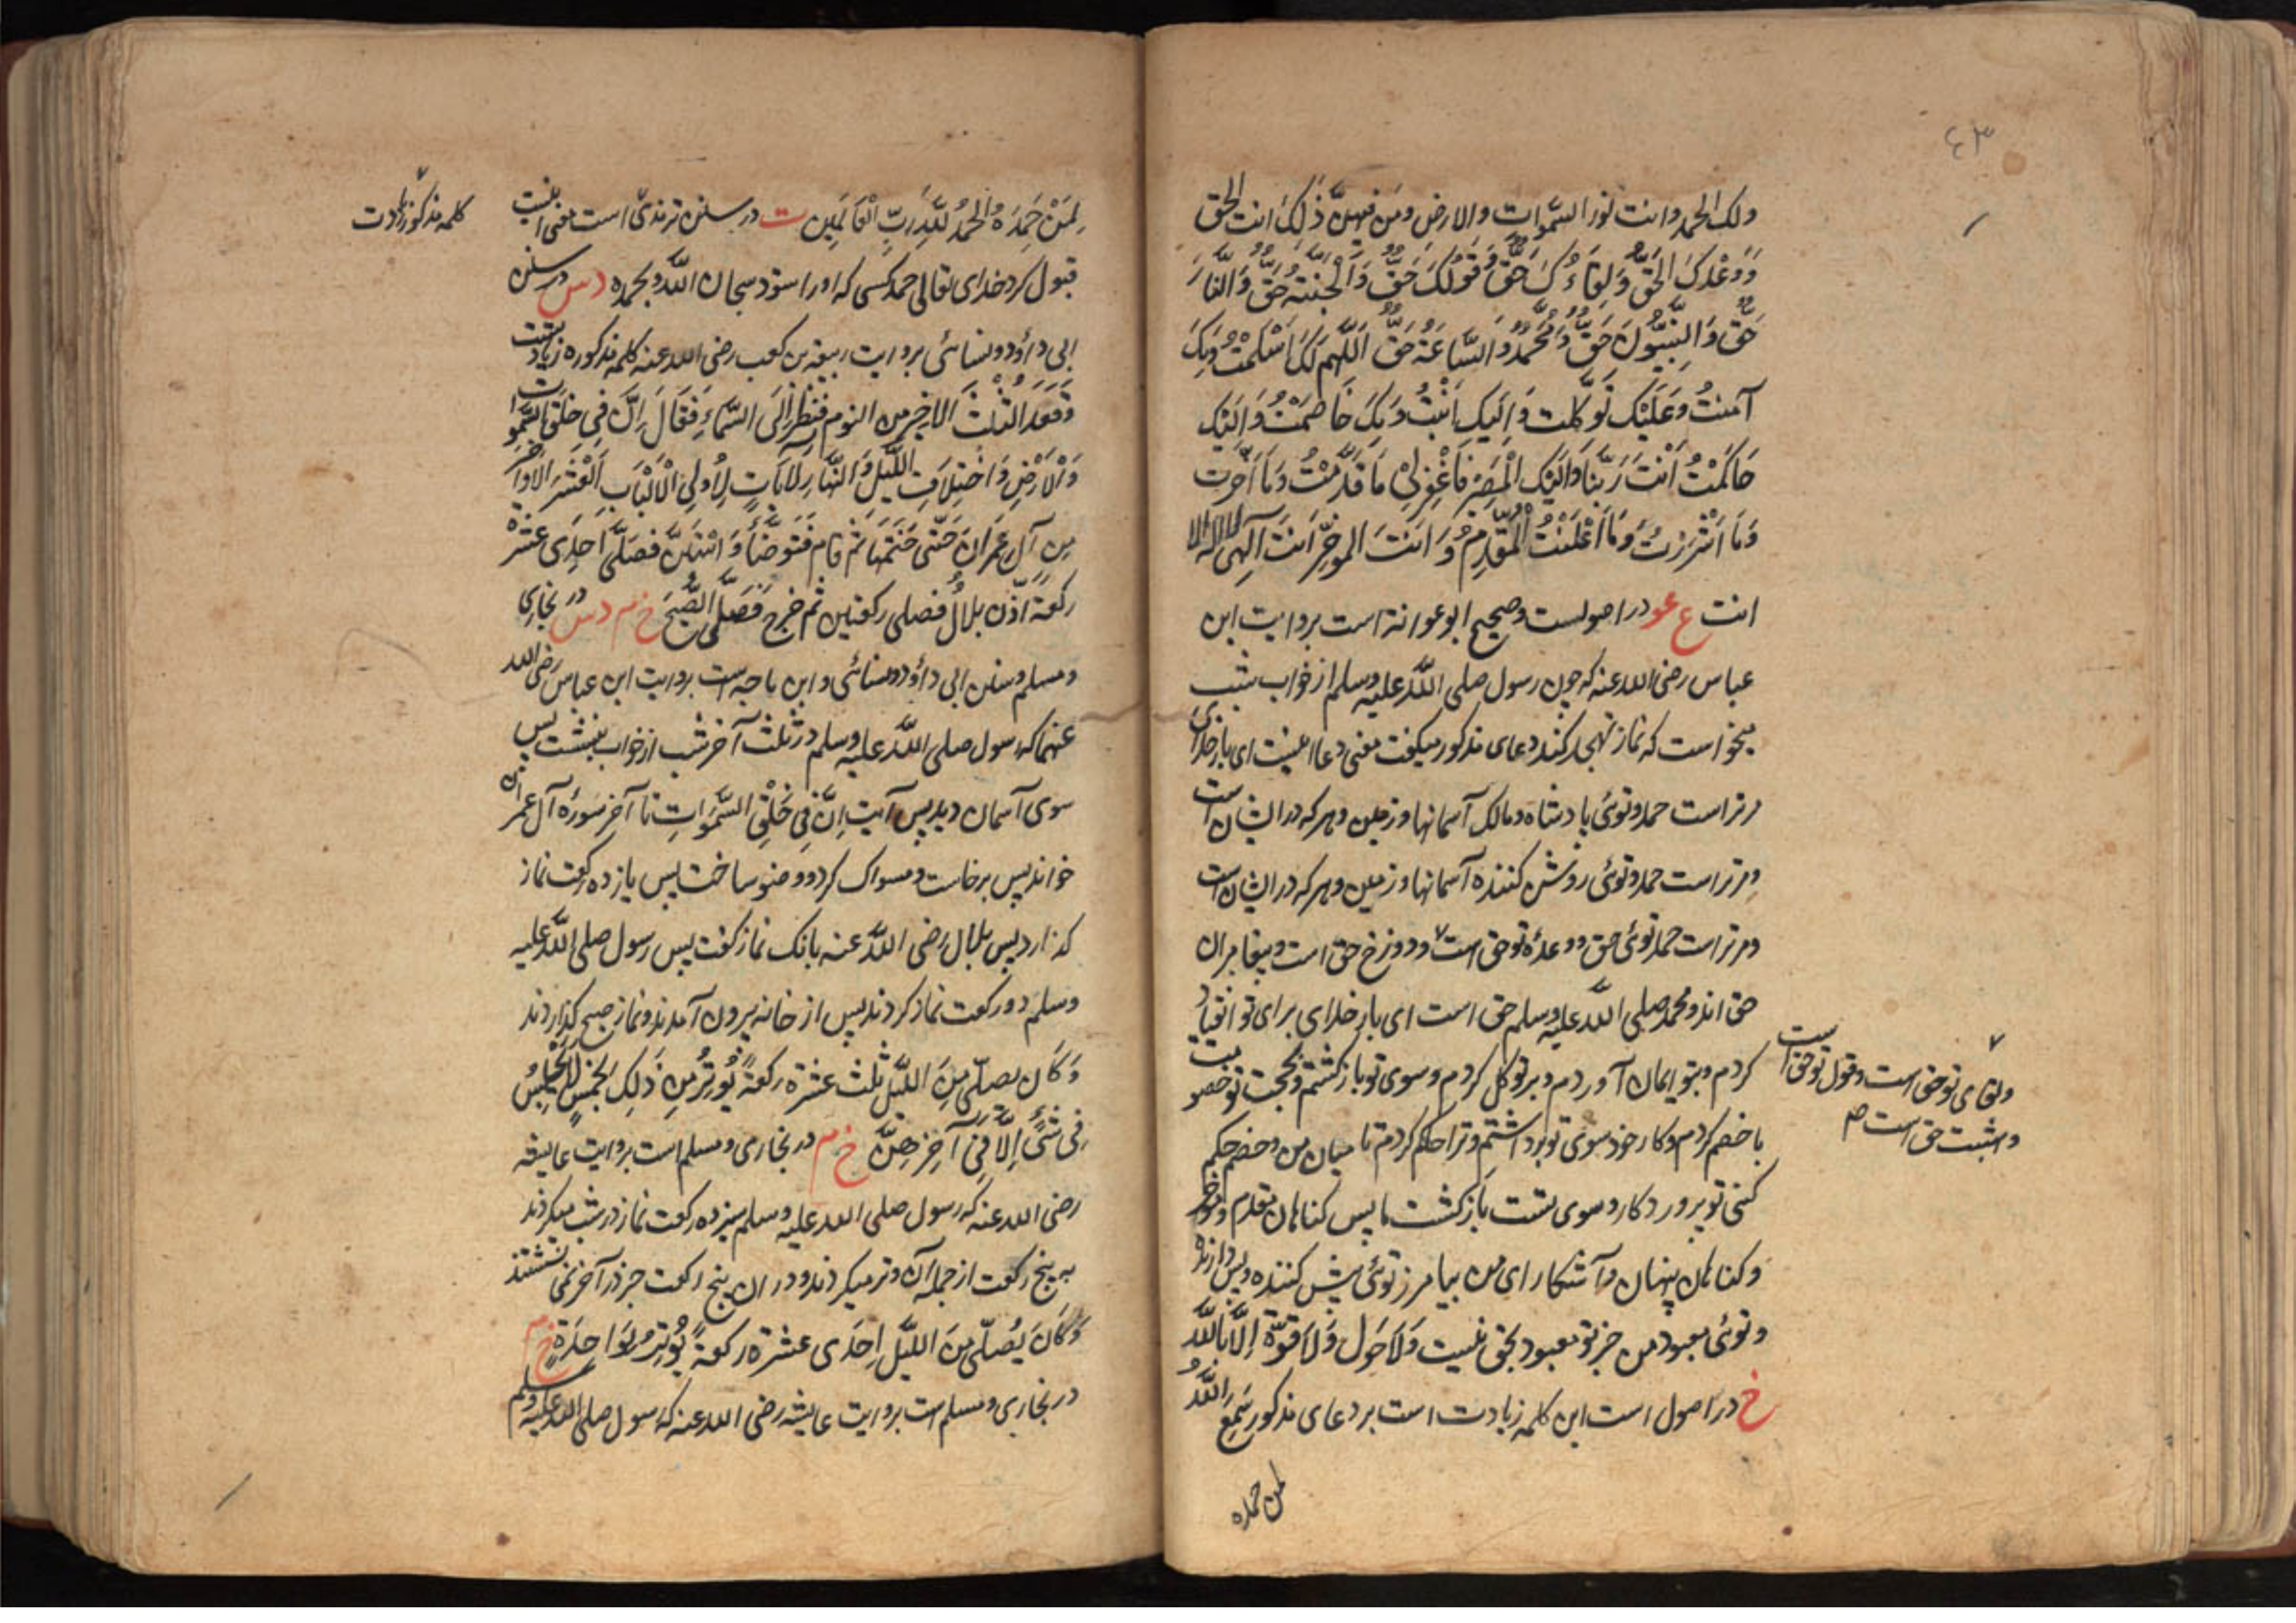 ٤٣
ولك الحمد وانت نور السموات والارض ومن فيهن ذلك انت الحق
وَوَعْدَكَ الحَقُّ وَلِقَاءُكَ حَقٌّ وَقَوْلُكَ حَقٌّ وَالْجَنَّةُ حَقٌّ وَالنَّارَ
حَقٌّ وَالنَّبِيُّونَ حَقٌّ وَمُحَمَّدٌ وَالسَّاعَةُ حَقٌّ اَللّٰهُمَّ لَكَ اَسْلَمْتُ وَبِكَ
آمنتُ وَعَلَيْكَ تَوَكَّلت وَاِلَيكَ اَنَبْتُ وَبِكَ خَاصَمْتُ وَاِلَيْكَ
حَاكَمْتُ اَنْتَ رَبُّنَا وَاِلَيْكَ الْمَصِيْر فَاغْفِرْلِيْ مَا قَدَّمْتُ وَمَا اَخَّرت
وَمَا اَسْرَرْتُ وَمَا اَعْلَنْتُ الْمُقَدِّمُ وَاَنتَ الموخِّرُ اَنتَ اِلٰهِي لا اله الا
انت ع عو در اصولست وصحیح ابو عوانة است بروایت ابن
عباس رضی الله عنه که چون رسول صلی اللّٰه علیه وسلم از خواب شب
میخواست که نماز تهجد کند دعای مذکور میگفت معنی دعا اینست ای بار خدای
مرتراست حمد وتوئی پادشاه ومالک آسمانها وزمین وهر که در ایشان است
ومرتراست حمد وتوئی روشن کننده آسمانها وزمین وهر که در ایشان است
ومرتراست حمد توئی حق ووعدهٔ تو حق است ودوزخ حق است وپیغامبران
حق اند ومحمد صلی اللّٰه علیه وسلم حق است ای بار خدای برای تو انقیاد
کردم وبتو ایمان آوردم وبر تو توکل کردم وسوی تو بازگشتم وبحجت تو خصومت
ولقای تو حق است وقول تو حق است
وبهشت حق است صح
با خصم کردم وکار خود سوی تو برداشتم وترا حکم کردم تا میان من وخصم حکم
کنی تو پروردگار وسوی تست بازگشت ما پس گناهان مقدم وموخر
وگناهان پنهان وآشکارای من بیامرز توئی پیش کننده وپس دارنده
وتوئی معبود من جز تو معبود بحق نیست وَلَا حَوْل وَلَا قوَّةَ اِلَّا بِاللّٰه
خ در اصول است این کلمه زیادت است بر دعای مذکور سَمِعَ اللّٰهُ
لمن حمده
لِمَنْ حَمِدَهُ الْحَمْدُ لِلّٰهِ رَبِّ الْعَالَمِين ت در سنن ترمذی است معنی اینست
کلمه مذکور زیادت
قبول کرد خدای تعالی حمد کسی که اورا ستود سبحان اللّٰه وبحمده د س در سنن
ابی داؤد ونسائی بروایت ربیعة بن کعب رضی الله عنه کلمه مذکوره زیادتست
وَقَعَدَ الثُّلُثَ الاخير من النوم فنظر اِلَى السَّمَاءِ فَقَالَ اِنَّ فِي خلق السَّموات
وَالْاَرْضِ وَاخْتِلَافِ اللَّيْلِ وَالنَّهَارِ لَآيَاتٍ لِاُولِي الْاَلْبَابِ اَلْعَشْرَ الْاَوَاخِرَ
مِن آلِ عِمْرَانَ حَتّٰى خَتَمَهَا ثم قام فَتَوَضَّأَ وَاسْتَنَّ فصَلَّى اِحْدٰى عَشْرَة
ركعة اَذَّنَ بلالٌ فصلی ركعتين ثُم خرج فَصَلَّى الصُّبْحَ خ م د س در بخاری
ومسلم وسنن ابی داؤد ونسائی وابن ماجه است بروایت ابن عباس رضی الله
عنهما که رسول صلی اللّٰه علیه وسلم در ثلث آخر شب از خواب بنشست پس
سوی آسمان دید پس آیت اِنَّ فِي خَلْقِ السَّمٰوَاتِ تا آخر سورهٔ آل عمران
خواند پس برخاست ومسواک کرد ووضو ساخت پس یازده رکعت نماز
گذارد پس بلال رضی اللّٰه عنه بانگ نماز گفت پس رسول صلی اللّٰه علیه
وسلم دو رکعت نماز کردند پس از خانه بیرون آمدند ونماز صبح گذاردند
وَكَان يصلّي مِنَ اللَّيْل ثلث عشرة ركعةً يُوتِرُ مِن ذٰلِك بخمس لا يجلس
فِی شَئٍ اِلَّا فِي آخِرِهِنَّ خ م در بخاری ومسلم است بروایت عایشه
رضی الله عنه که رسول صلی الله علیه وسلم سیزده رکعت نماز در شب میکردند
به پنج رکعت از جمله آن وتر میکردند ودر ان پنج رکعت جز در آخر نمی نشستند
وَكَانَ يُصَلّي مِنَ اللَّيْل اِحْدٰی عشرة ركعةً يُوتِرُ بِوَاحِدَةٍ خ م
در بخاری ومسلم است بروایت عایشه رضی الله عنه که رسول صلی الله علیه وسلم